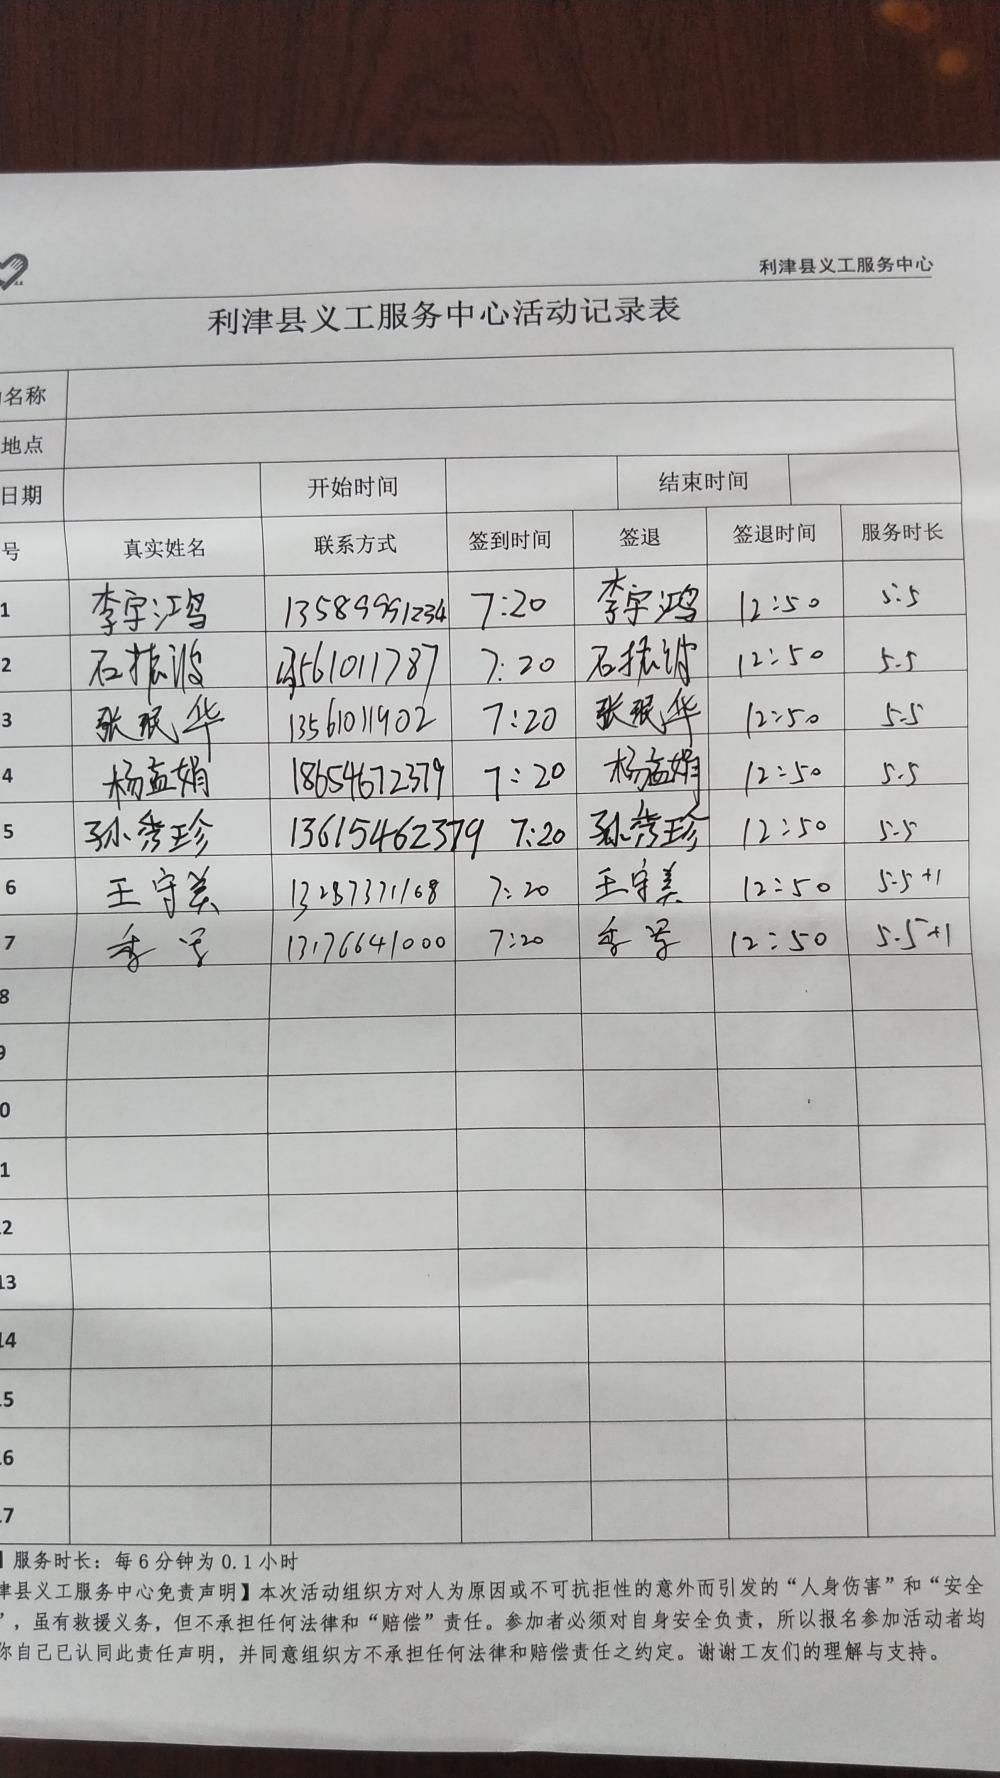 利津县义工服务中心
利津县义工服务中心活动记录表
名称
地点
日期 开始时间 结束时间
号 真实姓名 联系方式 签到时间 签退 签退时间 服务时长
1 李宇鸿 13589991234 7:20 李宇鸿 12:50 5.5
2 石振波 13561011787 7:20 石振波 12:50 5.5
3 张珉华 13561011902 7:20 张珉华 12:50 5.5
4 杨孟娟 18654672379 7:20 杨孟娟 12:50 5.5
5 孙秀珍 13615462379 7:20 孙秀珍 12:50 5.5
6 王守美 13287371168 7:20 王守美 12:50 5.5+1
7 季 13176641000 7:20 季 12:50 5.5+1
8
9
0
1
2
13
14
15
16
17
服务时长：每6分钟为0.1小时
津县义工服务中心免责声明】本次活动组织方对人为原因或不可抗拒性的意外而引发的“人身伤害”和“安全
”，虽有救援义务，但不承担任何法律和“赔偿”责任。参加者必须对自身安全负责，所以报名参加活动者均
你自己已认同此责任声明，并同意组织方不承担任何法律和赔偿责任之约定。谢谢工友们的理解与支持。